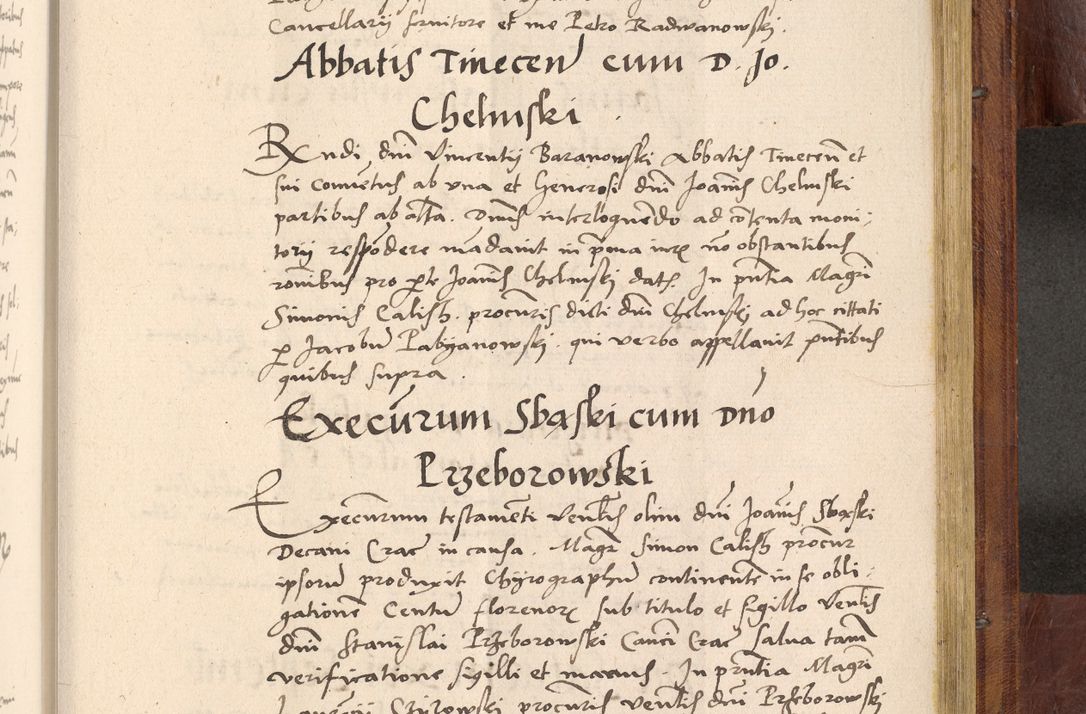 Cancellarii servitore et me Petro Radwanowski.
Abbatis Tinecen cum D. Jo.
Chelmski
Rndi dni Vincentij Baranowski Abbatis Tinecen et
sui Conventus ab una et Generosi dni Joannis Chelmski
partibus ab alta. Dnus interloquendo ad contenta moni-
torij respondere mandavit in pma iure no obstantibus
ronibus pro pte Joannis Chelmski dat. In pntia Magri
Simonis Calish. procuris dicti dni Chelmski ad hoc cittati
p Jacobu Pabyanowski. qui verbo appellavit pntibus
quibus supra.
Execurum Sbaski cum Dno
Przeborowski
Execurum testamenti Venlis olim dni Joannis Sbaski
Decani Crac in causa. Magr Simon Calish procur
ipsoru produxit Chyrographu continente in se obli-
gatione Centu florenor sub titulo et sigillo Venlis
dni Stanislai Przeborowski Canci Crac salva tam
verificatione sigilli et manus. In pntia Magri
Czizowski procuris Venlis dni Przeborowski